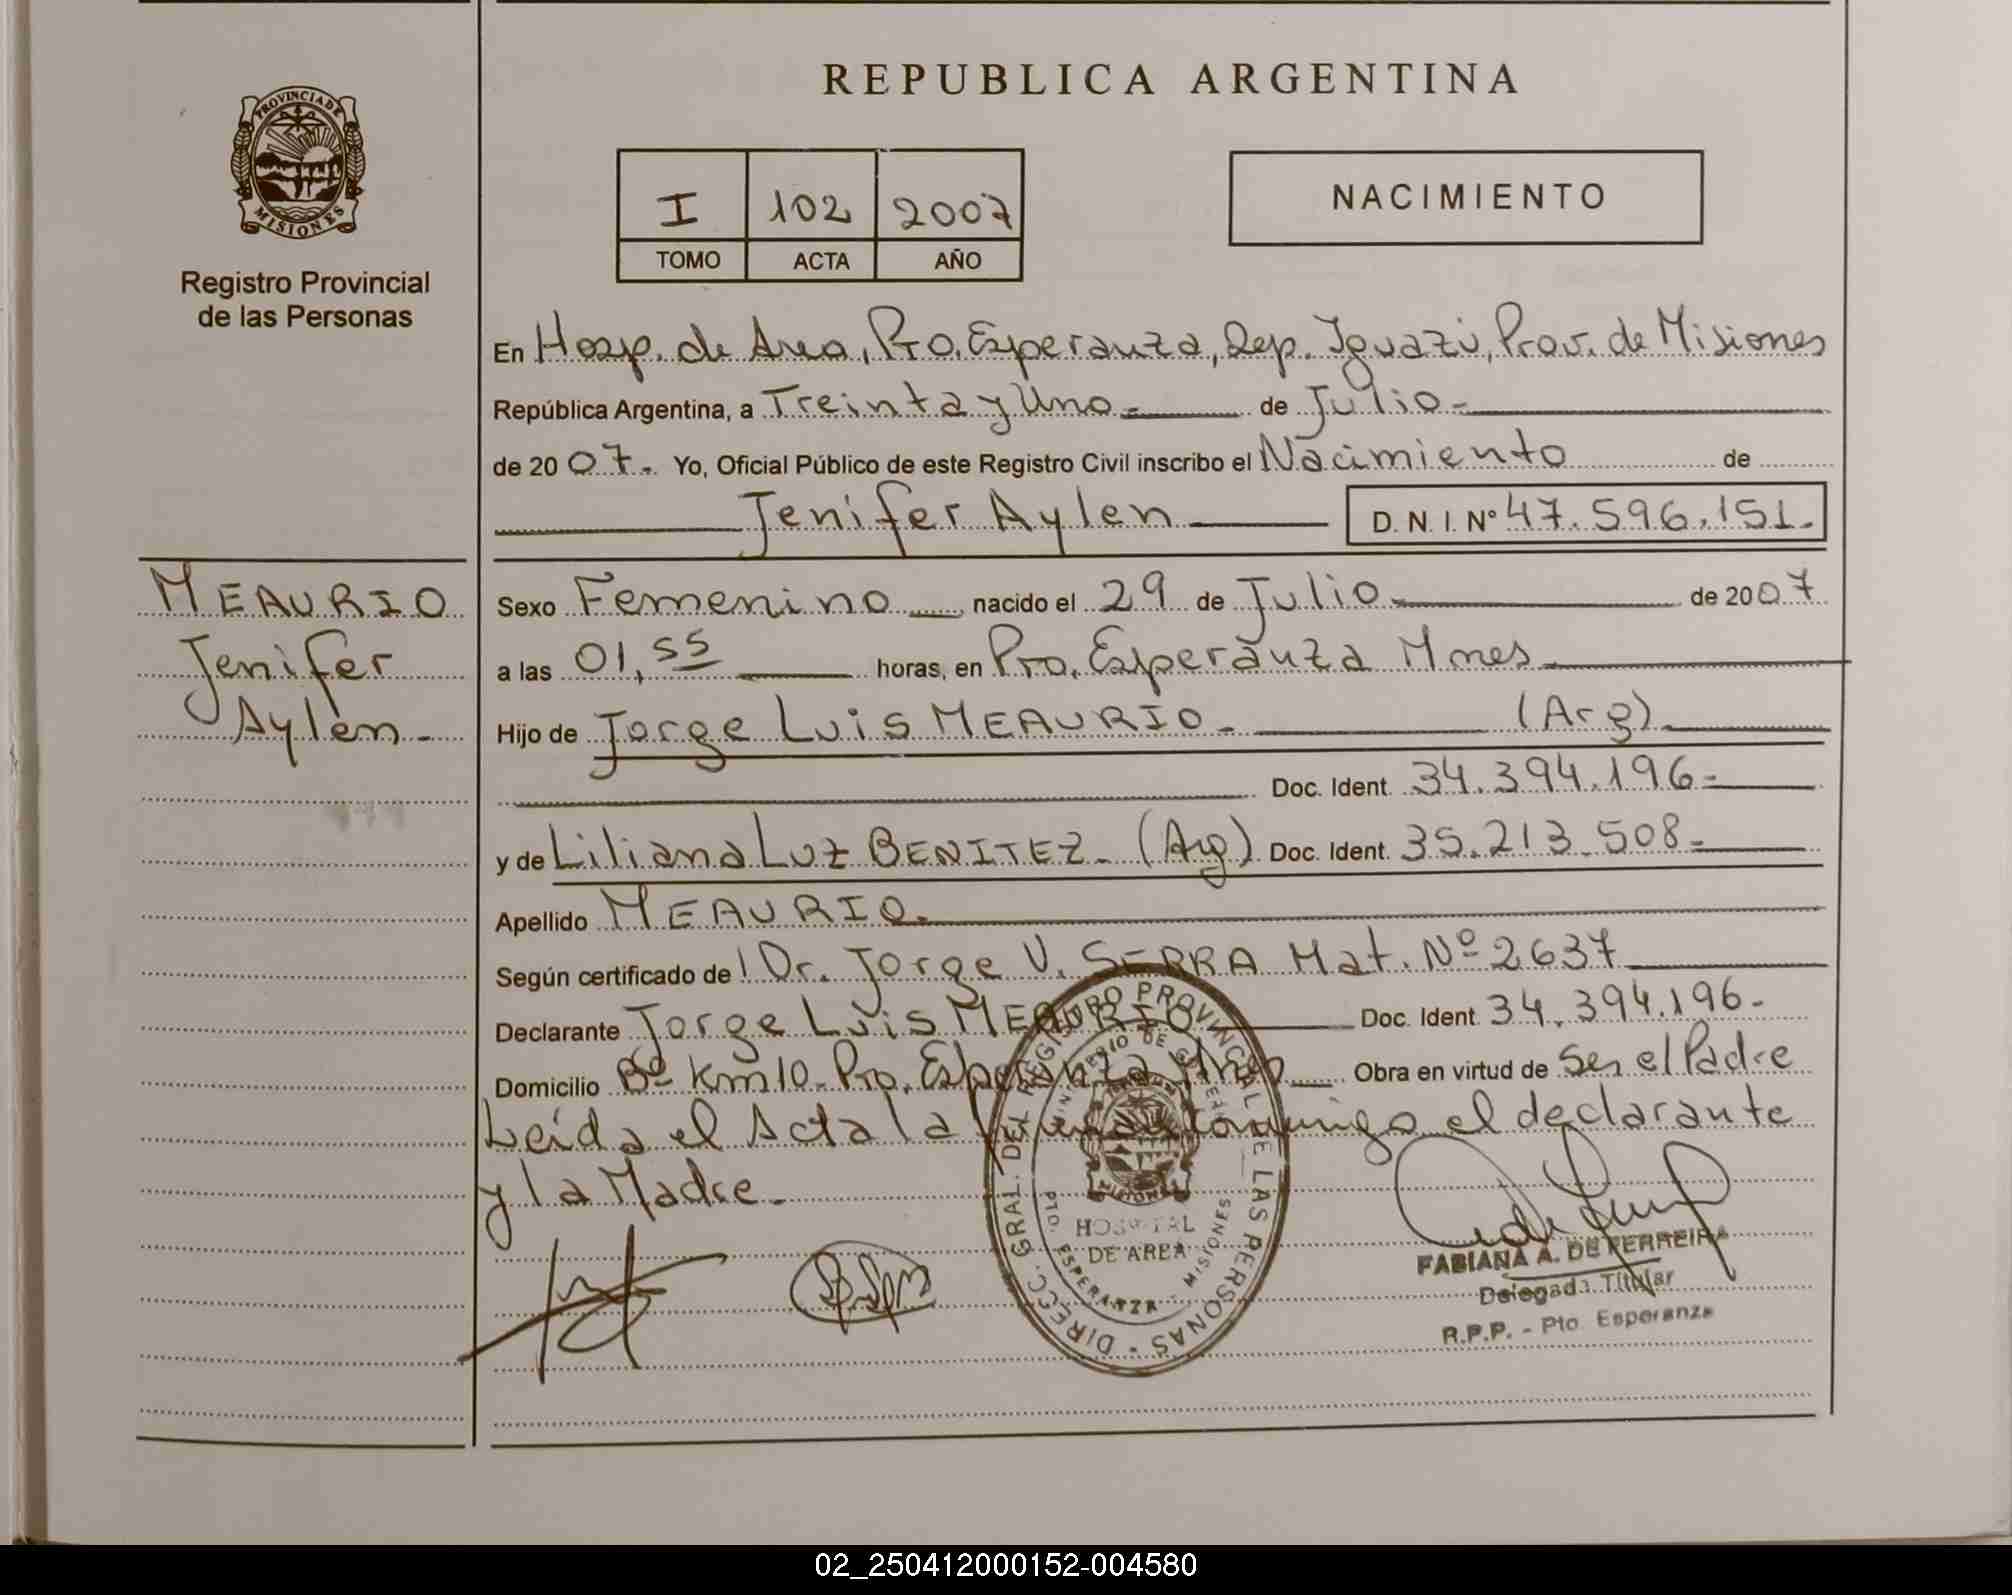 REPUBLICA ARGENTINA
PROVINCIA DE
MISIONES
Registro Provincial
de las Personas
I 102 2007
TOMO ACTA AÑO
NACIMIENTO
En Hosp. de Area, Pto. Esperanza, Dep. Iguazú, Prov. de Misiones
República Argentina, a Treinta y Uno de Julio
de 2007. Yo, Oficial Público de este Registro Civil inscribo el Nacimiento de
Jenifer Aylen D. N. I. Nº 47.596.151.
MEAURIO
Jenifer
Aylen
Sexo Femenino nacido el 29 de Julio de 2007
a las 01,55 horas, en Pto. Esperanza Mnes
Hijo de Jorge Luis MEAURIO (Arg)
Doc. Ident. 34.394.196
y de Liliana Luz BENITEZ (Arg) Doc. Ident. 35.213.508
Apellido MEAURIO
Según certificado de Dr. Jorge V. SERRA Mat. Nº 2637
Declarante Jorge Luis MEAURIO Doc. Ident. 34.394.196
Domicilio Bº Km 10 Pto. Esperanza Mnes Obra en virtud de Ser el Padre
Leida el Acta la firman conmigo el declarante
y la Madre
DIRECC. GRAL. DEL REGISTRO PROVINCIAL DE LAS PERSONAS
MINISTERIO DE GOBIERNO
MISIONES
HOSPITAL
DE AREA
PTO. ESPERANZA - MISIONES
FABIANA A. DE FERREIRA
Delegada Titular
R.P.P. - Pto. Esperanza
02_250412000152-004580